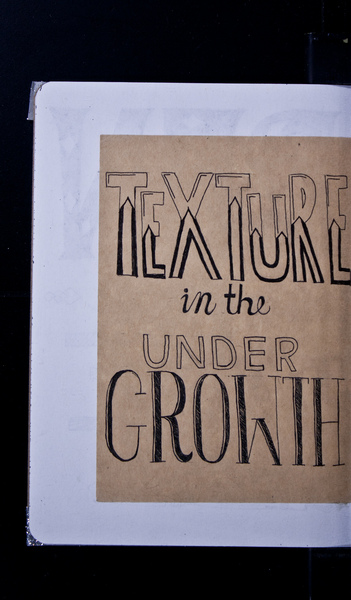 TEXTURE
in the
UNDER
GROWTH